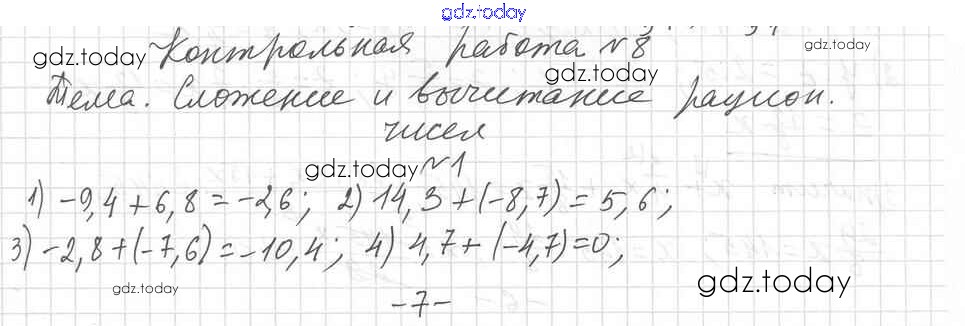 gdz.today
Контрольная работа №8
gdz.today
gdz.today
Тема. Сложение и вычитание рацион.
чисел
gdz.today
№1
1) -9,4 + 6,8 = -2,6; 2) 14,3 + (-8,7) = 5,6;
3) -2,8 + (-7,6) = -10,4; 4) 4,7 + (-4,7) = 0;
gdz.today
gdz.today
-7-